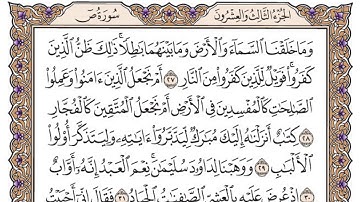 الجزء الثالث والعشرون سورة ص
وَمَا خَلَقْنَا السَّمَاءَ وَالْأَرْضَ وَمَا بَيْنَهُمَا بَاطِلًا ذَلِكَ ظَنُّ الَّذِينَ
كَفَرُوا فَوَيْلٌ لِلَّذِينَ كَفَرُوا مِنَ النَّارِ ٢٧ أَمْ نَجْعَلُ الَّذِينَ ءَامَنُوا وَعَمِلُوا
الصَّلِحَتِ كَالْمُفْسِدِينَ فِي الْأَرْضِ أَمْ نَجْعَلُ الْمُتَّقِينَ كَالْفُجَّارِ
٢٨ كِتَبٌ أَنْزَلْنَهُ إِلَيْكَ مُبَرَكٌ لِيَدَّبَّرُوا ءَايَتِهِ وَلِيَتَذَكَّرَ أُولُوا
الْأَلْبَبِ ٢٩ وَوَهَبْنَا لِدَاوُدَ سُلَيْمَنَ نِعْمَ الْعَبْدُ إِنَّهُ أَوَّابٌ
٣٠ إِذْ عُرِضَ عَلَيْهِ بِالْعَشِيِّ الصَّفِنَتُ الْجِيَادُ ٣١ فَقَالَ إِنِّي أَحْبَبْتُ